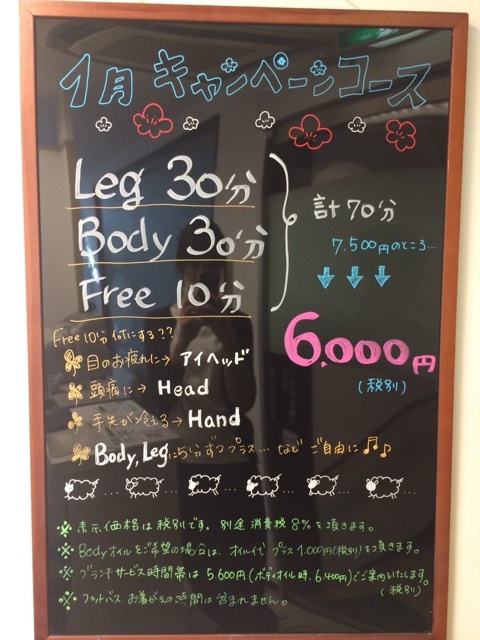 1月 キャンペーンコース
Leg 30分
Body 30分
Free 10分
計70分
7.500円のところ…
6.000円
(税別)
Free 10分 何にする??
目のお疲れに→ アイヘッド
頭痛に→ Head
手先が冷える→ Hand
Body, Legに5分ずつプラス… など ご自由に♬♪
※ 表示価格は税別です。別途消費税8%を頂きます。
※ Bodyオイルをご希望の場合は、オイル代プラス1.000円(税別)を頂きます。
※ ブランチサービス時間帯は 5.600円(ボディオイル時、6.400円)でご案内いたします。
(税別)
※ フットバス、お着がえの時間は含まれません。